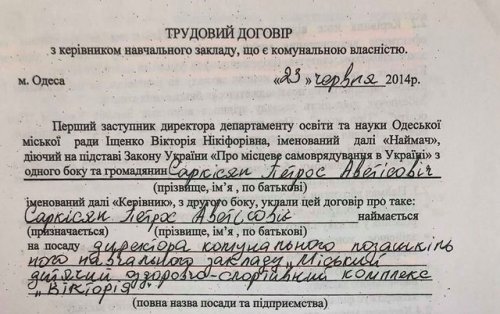 ТРУДОВИЙ ДОГОВІР
з керівником навчального закладу, що є комунальною власністю.
м. Одеса «23» червня 2014р.
Перший заступник директора департаменту освіти та науки Одеської
міської ради Іщенко Вікторія Нікіфорівна, іменований далі «Наймач»,
діючий на підставі Закону України «Про місцеве самоврядування в Україні» з
одного боку та громадянин Саркісян Петрос Аветісовіч
(прізвище, ім’я , по батькові)
іменований далі «Керівник», з другого боку, уклали цей договір про таке:
Саркісян Петрос Аветісовіч наймається
(призначається) (прізвище, ім’я , по батькові)
на посаду директора комунального позашкіль
ного навчального закладу „Міський
дитячий здорово-спортивний комплекс
„Вікторія"
(повна назва посади та підприємства)